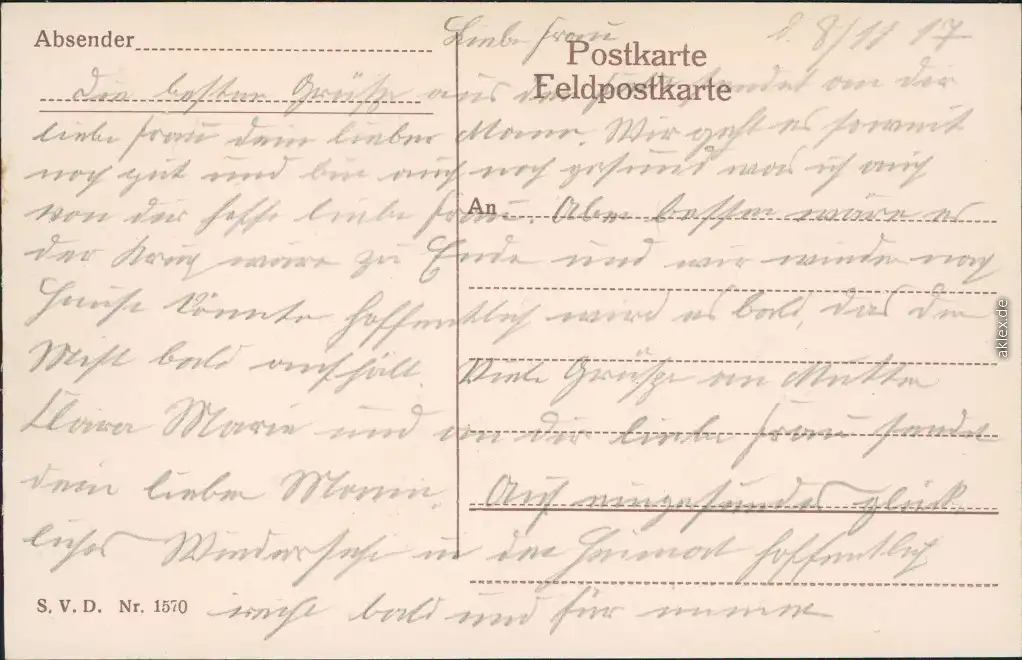 Absender
Postkarte
Feldpostkarte
Liebe Frau d. 8/11 17
Die besten Grüße aus der sendet an der
liebe Frau dein lieber Mann. Mir geht es soweit
noch gut und bin auch noch gesund was ich auch
von dir hoffe liebe Frau. Aber besser wäre es
An
der Krieg wäre zu Ende und wir wieder nach
Hause könnte hoffentlich wird es bald, das der
Mist bald aufhält. Viele Grüße an Mutter
Clara Marie und an dir liebe Frau sendet
dein lieber Mann.
Auf ein gesundes glück
liches Wiedersehe in der Heimat hoffentlich
recht bald und für immer
S. V. D. Nr. 1570
aklex.de